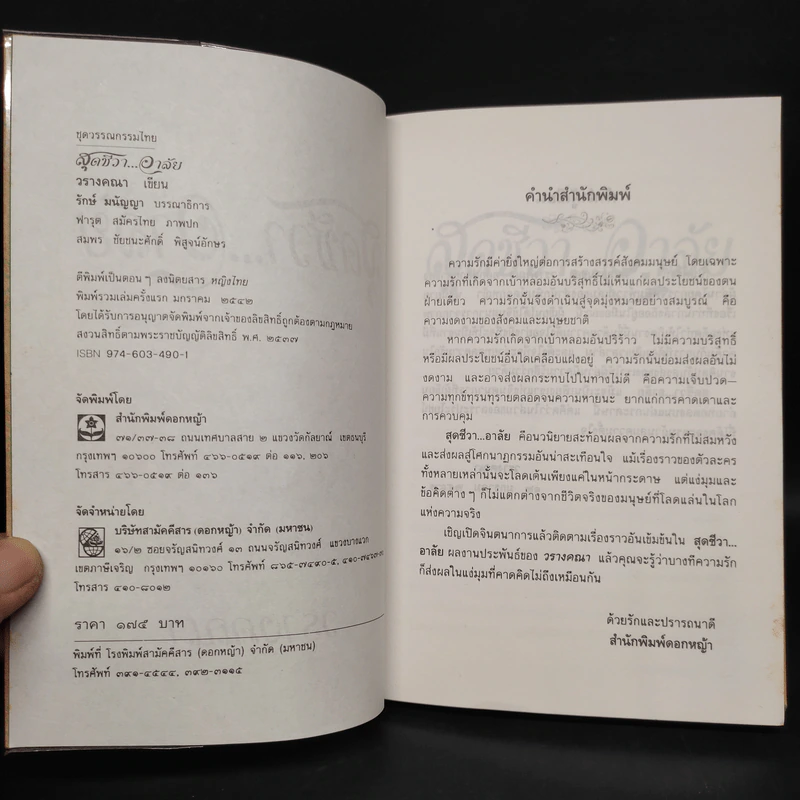 ชุดวรรณกรรมไทย
สุดชีวา...อาลัย
วรางคณา เขียน
รักษ์ มนัญญา บรรณาธิการ
ฟารุต สมัครไทย ภาพปก
สมพร ชัยชนะศักดิ์ พิสูจน์อักษร
ตีพิมพ์เป็นตอนๆ ลงนิตยสาร หญิงไทย
พิมพ์รวมเล่มครั้งแรก มกราคม ๒๕๔๒
โดยได้รับการอนุญาตจัดพิมพ์จากเจ้าของลิขสิทธิ์ถูกต้องตามกฎหมาย
สงวนสิทธิ์ตามพระราชบัญญัติลิขสิทธิ์ พ.ศ. ๒๕๓๗
ISBN 974-603-490-1
จัดพิมพ์โดย
สำนักพิมพ์ดอกหญ้า
๗๑/๓๗-๓๘ ถนนเทศบาลสาย ๒ แขวงวัดกัลยาณ์ เขตธนบุรี
กรุงเทพฯ ๑๐๖๐๐ โทรศัพท์ ๔๖๖-๐๕๑๙ ต่อ ๑๑๖, ๒๐๖
โทรสาร ๔๖๖-๐๕๑๙ ต่อ ๑๓๖
จัดจำหน่ายโดย
บริษัทสามัคคีสาร (ดอกหญ้า) จำกัด (มหาชน)
๑๖/๒ ซอยจรัญสนิทวงศ์ ๑๓ ถนนจรัญสนิทวงศ์ แขวงบางแวก
เขตภาษีเจริญ กรุงเทพฯ ๑๐๑๖๐ โทรศัพท์ ๘๖๕-๗๔๙๐-๕,
โทรสาร ๔๑๐-๘๐๑๒
ราคา ๑๗๕ บาท
พิมพ์ที่ โรงพิมพ์สามัคคีสาร (ดอกหญ้า) จำกัด (มหาชน)
โทรศัพท์ ๓๙๑-๔๕๔๔, ๓๙๒-๓๑๑๕
คำนำสำนักพิมพ์
ความรักมีค่ายิ่งใหญ่ต่อการสร้างสรรค์สังคมมนุษย์ โดยเฉพาะ
ความรักที่เกิดจากเบ้าหลอมอันบริสุทธิ์ไม่เห็นแก่ผลประโยชน์ของตน
ฝ่ายเดียว ความรักนั้นจึงดำเนินสู่จุดมุ่งหมายอย่างสมบูรณ์ คือ
ความงดงามของสังคมและมนุษยชาติ
หากความรักเกิดจากเบ้าหลอมอันปริร้าว ไม่มีความบริสุทธิ์
หรือมีผลประโยชน์อื่นใดเคลือบแฝงอยู่ ความรักนั้นย่อมส่งผลอันไม่
งดงาม และอาจส่งผลกระทบไปในทางไม่ดี คือความเจ็บปวด—
ความทุกข์ทุรนทุรายตลอดจนความหายนะ ยากแก่การคาดเดาและ
การควบคุม
สุดชีวา...อาลัย คือนวนิยายสะท้อนผลจากความรักที่ไม่สมหวัง
และส่งผลสู่โศกนาฏกรรมอันน่าสะเทือนใจ แม้เรื่องราวของตัวละคร
ทั้งหลายเหล่านั้นจะโลดเต้นเพียงแค่ในหน้ากระดาษ แต่แง่มุมและ
ข้อคิดต่างๆ ก็ไม่แตกต่างจากชีวิตจริงของมนุษย์ที่โลดแล่นในโลก
แห่งความจริง
เชิญเปิดจินตนาการแล้วติดตามเรื่องราวอันเข้มข้นใน สุดชีวา...
อาลัย ผลงานประพันธ์ของ วรางคณา แล้วคุณจะรู้ว่าบางทีความรัก
ก็ส่งผลในแง่มุมที่คาดคิดไม่ถึงเหมือนกัน
ด้วยรักและปรารถนาดี
สำนักพิมพ์ดอกหญ้า